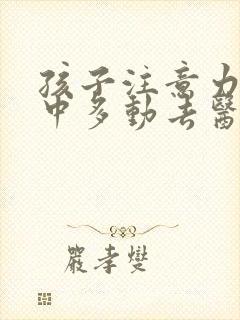 孩子注意力
中多動去醫
嚴孝燮